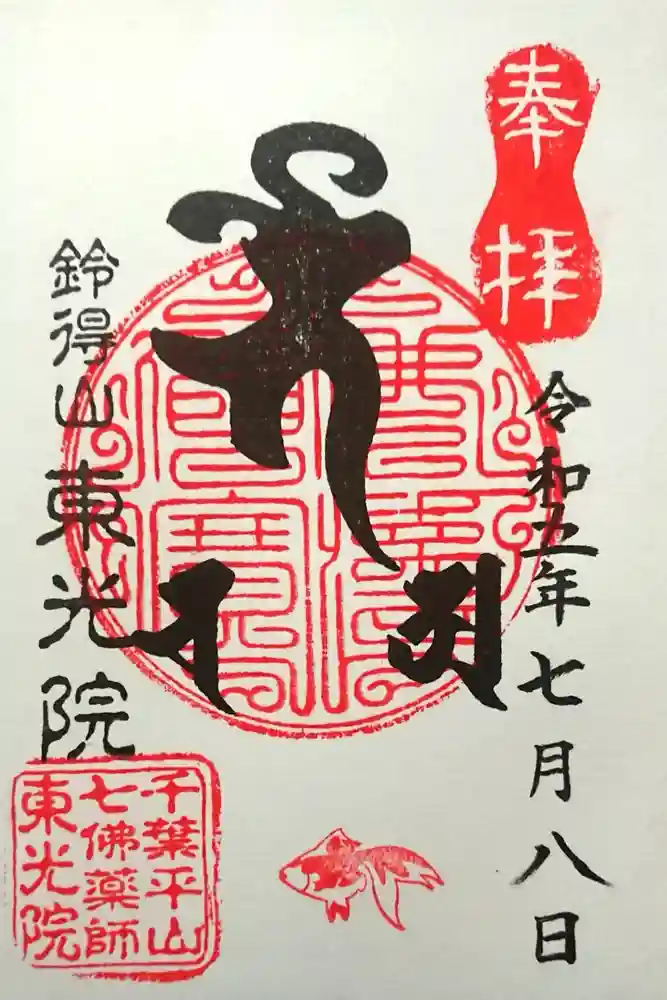 奉拝
令和五年七月八日
佛法僧寶
鈴得山東光院
千葉平山
七佛薬師
東光院